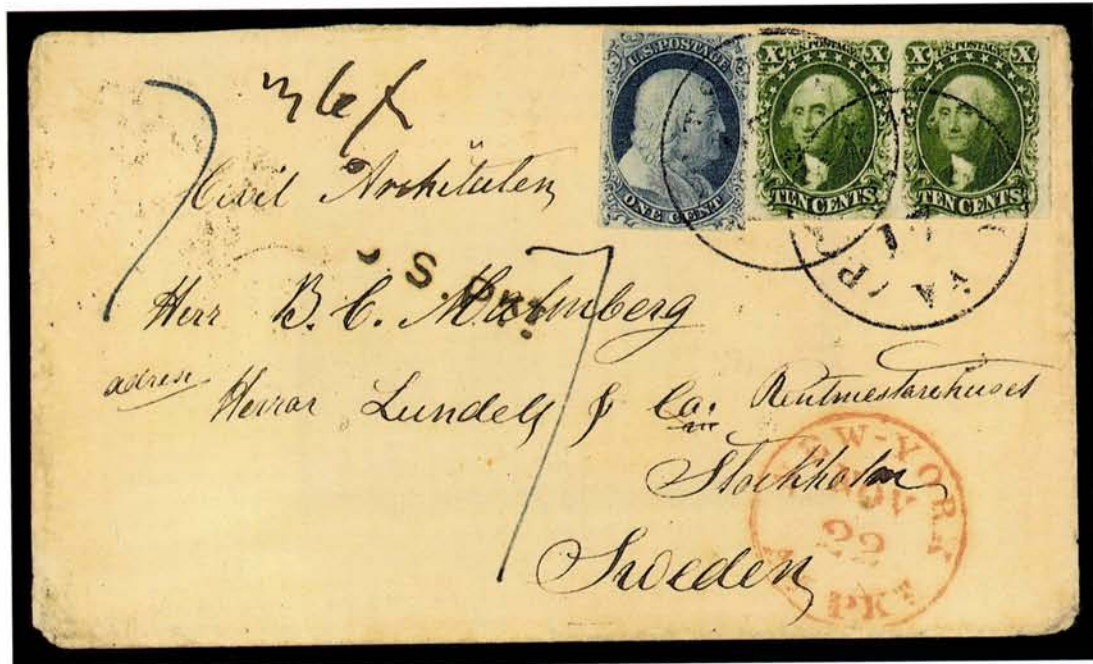 U.S. POSTAGE
ONE CENT
X U.S. POSTAGE X
TEN CENTS
X U.S. POSTAGE X
TEN CENTS
7
Civil Architekten
S. PKT
7
Herr B. C. Malmberg
adress
Herrar Lundell & Co.
Stockholm
Sweden
NEW-YORK
NOV
22
PKT